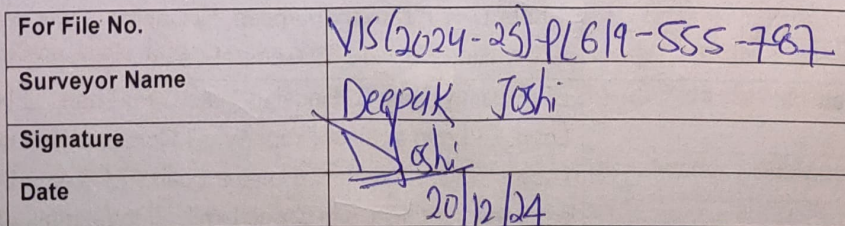 For File No. VIS(2024-25)-PL619-555-787
Surveyor Name Deepak Joshi
Signature DJoshi
Date 20/12/24